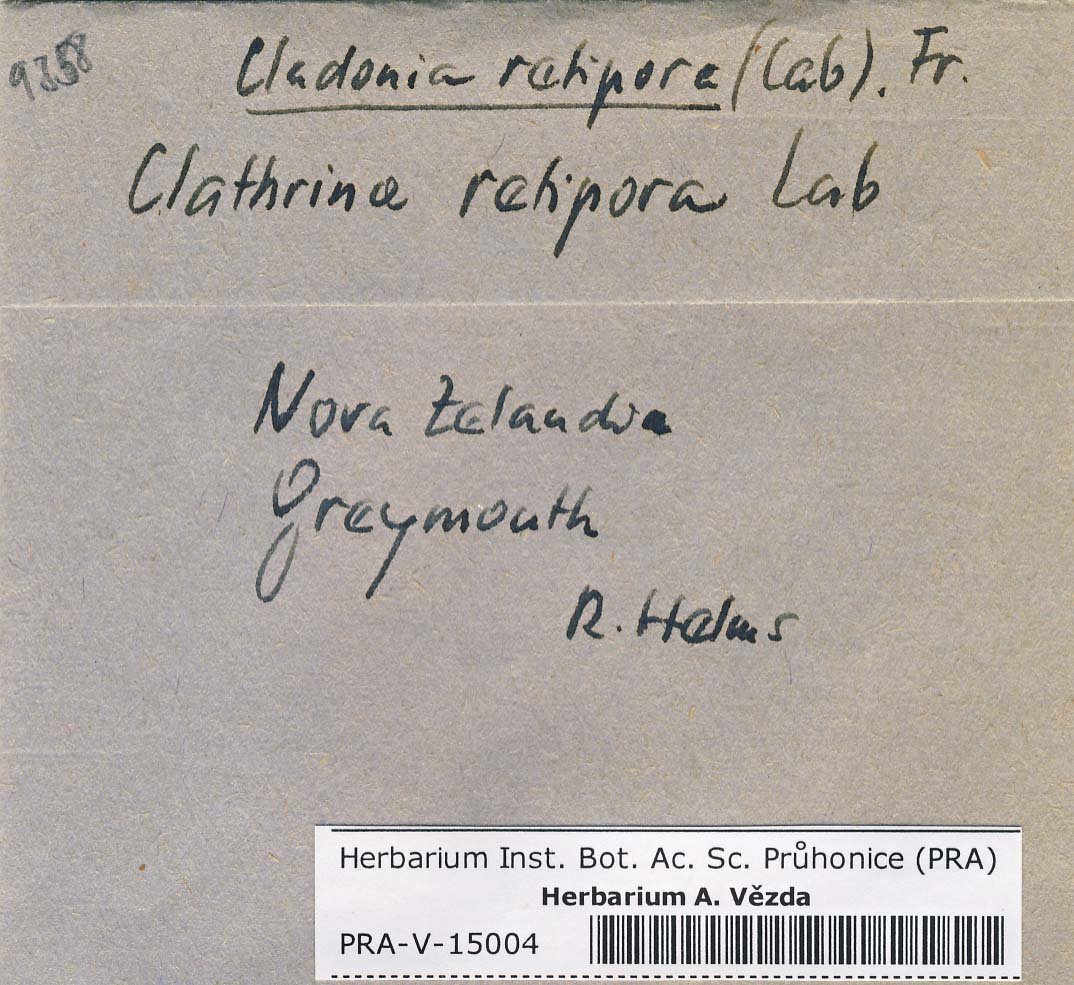 9358
Cladonia retipora (Lab). Fr.
Clathrina retipora Lab
Nova Zelandia
Greymouth
R. Helms
Herbarium Inst. Bot. Ac. Sc. Průhonice (PRA)
Herbarium A. Vězda
PRA-V-15004